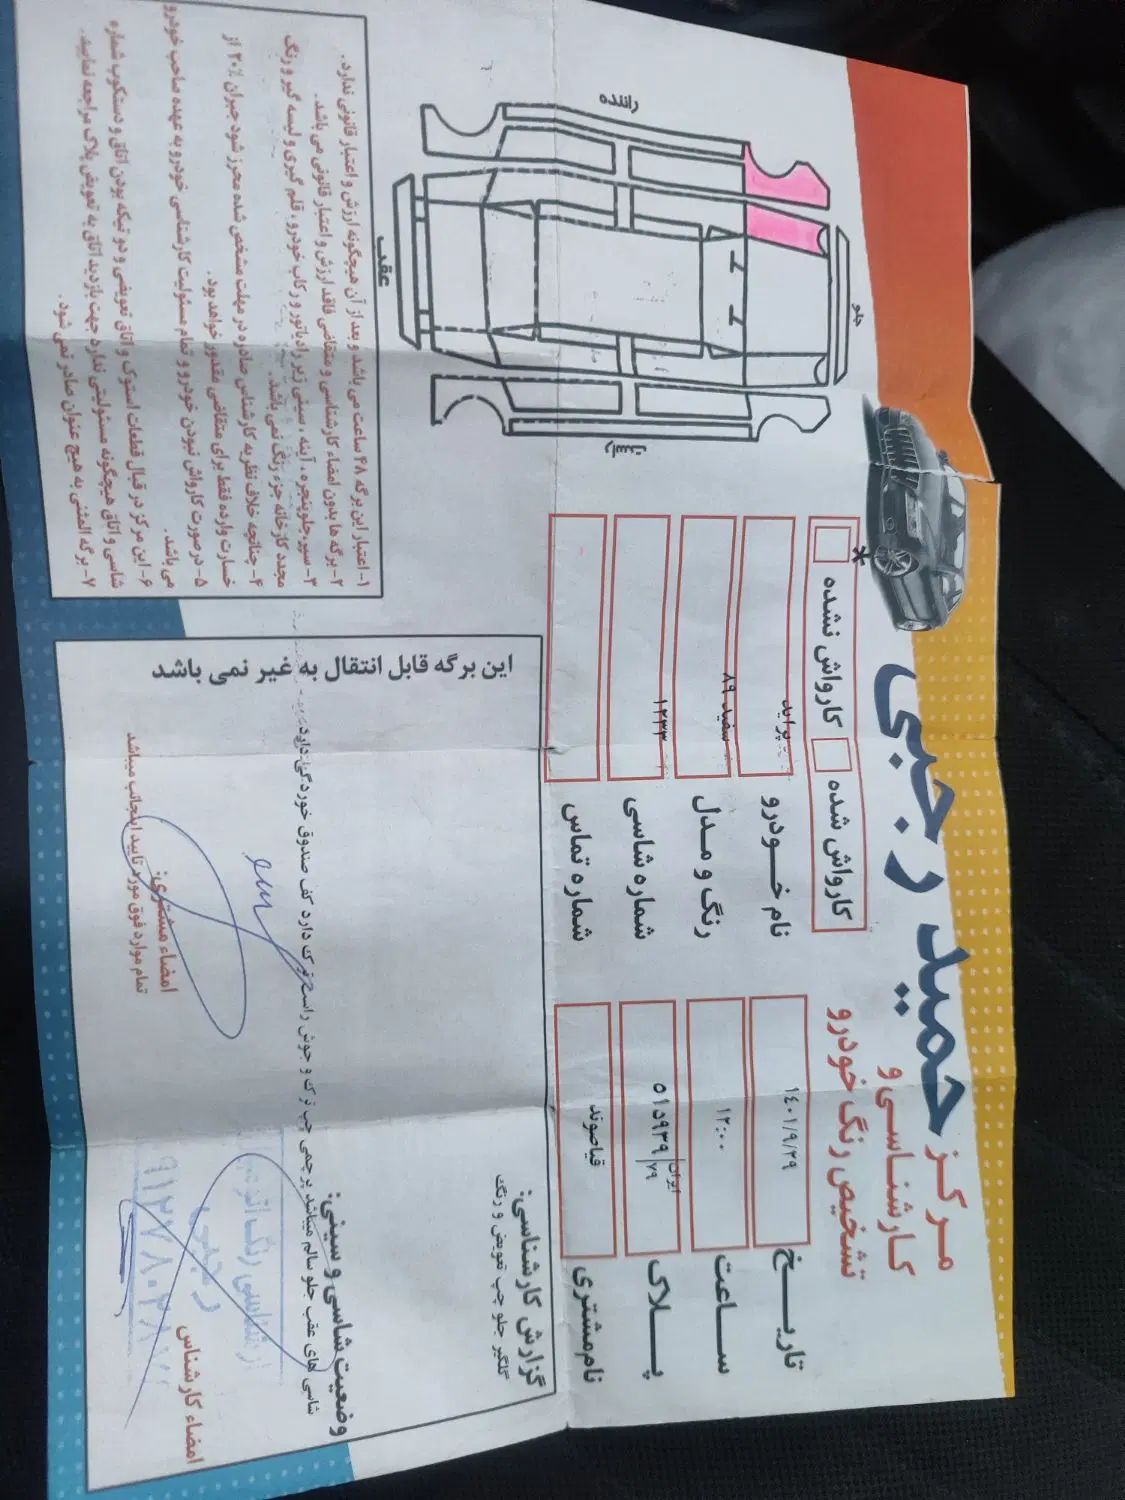 مرکز حمید رجبی
کارشناسی و
تشخیص رنگ خودرو
کارواش شده
کارواش نشده *
تاریـــخ
۱۴۰۱/۹/۲۹
ســاعت
۱۲:۰۰
پــلاک
۵۱ د ۹۳۹ ایران ۷۹
نام مشتری
قیاصوند
نام خـــودرو
پراید
رنگ و مــدل
سفید ۸۹
شماره شاسی
۱۲۳۳
شماره تماس
جلو
راننده
عقب
گزارش کارشناسی:
گلگیر جلو چپ تعویض و رنگ
وضعیت شاسی و سینی:
شاسی های عقب جلو سالم میباشد پرچمی چپ ترک و جوش راست ترک دارد کف صندوق خوردگی دارد
این برگه قابل انتقال به غیر نمی باشد
امضاء کارشناس
امضاء مشتری:
تمام موارد فوق مورد تایید اینجانب میباشد
۱- اعتبار این برگه ۴۸ ساعت می باشد و بعد از آن هیچگونه ارزش و اعتبار قانونی ندارد.
۲- برگه ها بدون امضاء کارشناسی و متقاضی فاقد ارزش و اعتبار قانونی می باشد.
۳- سپر، جلوپنجره، آینه، سینی زیر رادیاتور و رکاب خودرو، قلم گیری و لیسه گیر و رنگ
مجدد کارخانه جزء رنگ نمی باشد.
۴- چنانچه خلاف نظریه کارشناس صادره در مهلت مشخص شده محرز شود جبران ۳۰٪ از
خسارت وارده فقط برای متقاضی مقدور خواهد بود.
۵- در صورت کارواش نبودن خودرو و تمام مسئولیت کارشناسی خودرو به عهده صاحب خودرو
می باشد.
۶- این مرکز در قبال قطعات استوک و اتاق تعویضی و دو تیکه بودن اتاق و دستکوب شماره
شاسی و اتاق هیچگونه مسئولیتی ندارد جهت بازدید اتاق به تعویض پلاک مراجعه نمایید.
۷- برگه المثنی به هیچ عنوان صادر نمی شود.